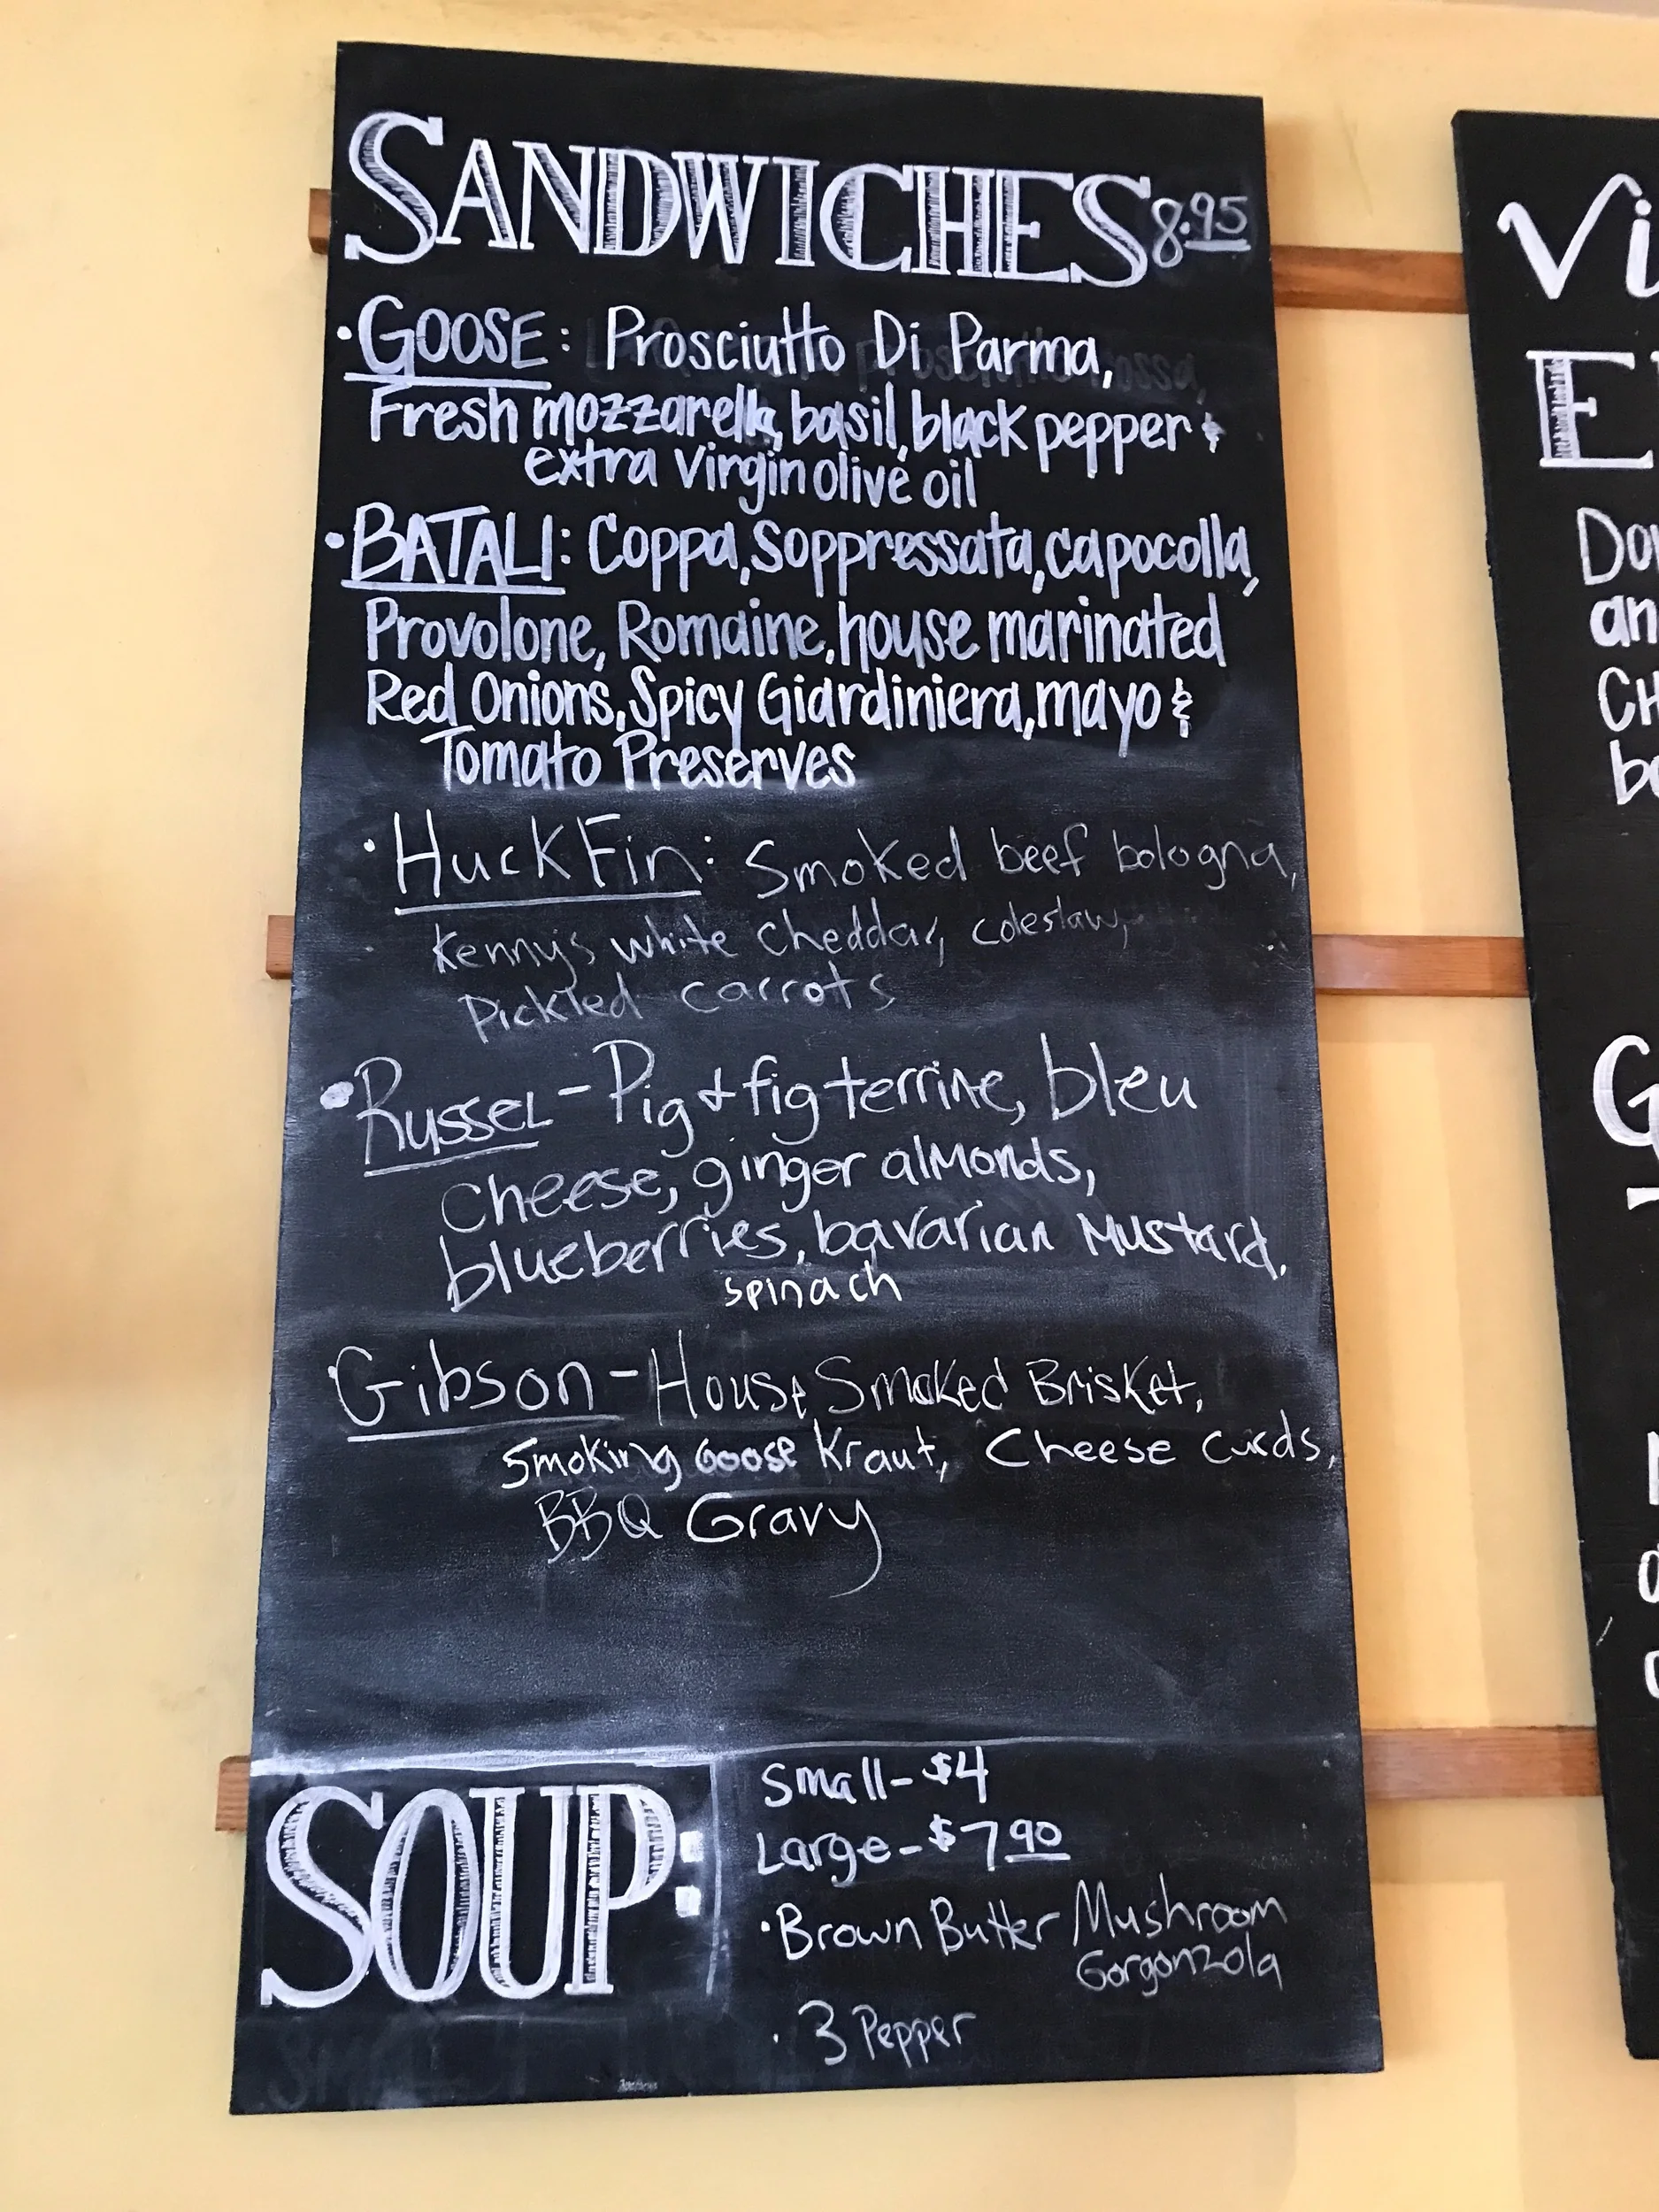 SANDWICHES 8.95
• GOOSE: Prosciutto Di Parma,
Fresh mozzarella, basil, black pepper &
extra virgin olive oil
• BATALI: Coppa, Soppressata, capocolla,
Provolone, Romaine, house marinated
Red Onions, Spicy Giardiniera, mayo &
Tomato Preserves
• Huck Fin: Smoked beef bologna,
Kenny's white cheddar, coleslaw,
Pickled carrots
• Russel - Pig & fig terrine, bleu
cheese, ginger almonds,
blueberries, bavarian Mustard.
spinach
• Gibson - House Smoked Brisket,
Smoking Goose Kraut, Cheese curds,
BBQ Gravy
SOUP:
Small - $4
Large - $7 90
• Brown Butter Mushroom
Gorgonzola
• 3 Pepper
Vi
E
Do
an
CH
bo
G